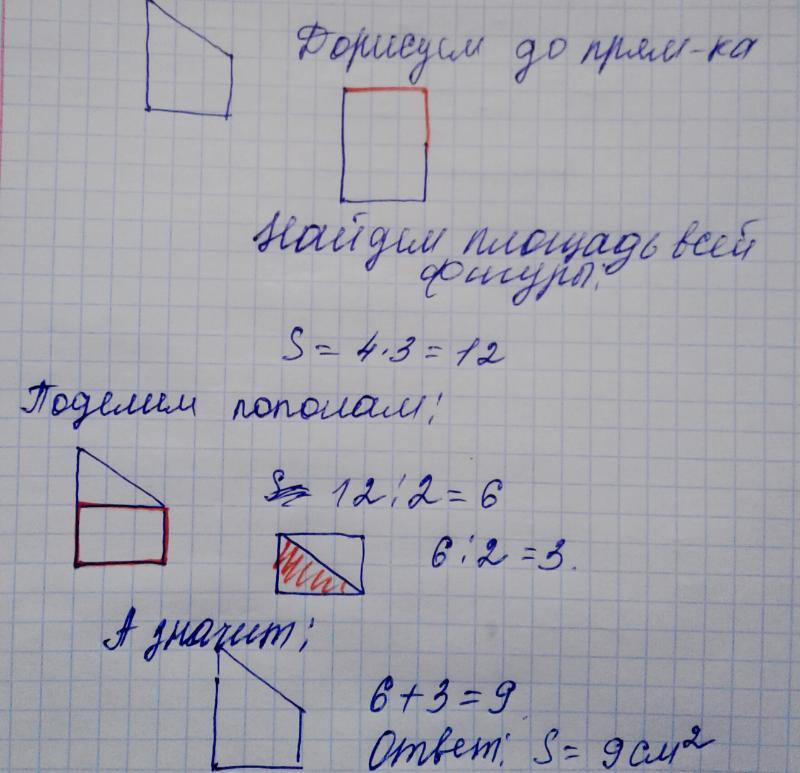 Дорисуем до прям-ка
Найдем площадь всей
фигуры:
S = 4·3 = 12
Поделим пополам:
12:2 = 6
6:2 = 3.
А значит:
6+3=9
Ответ: S = 9 см²